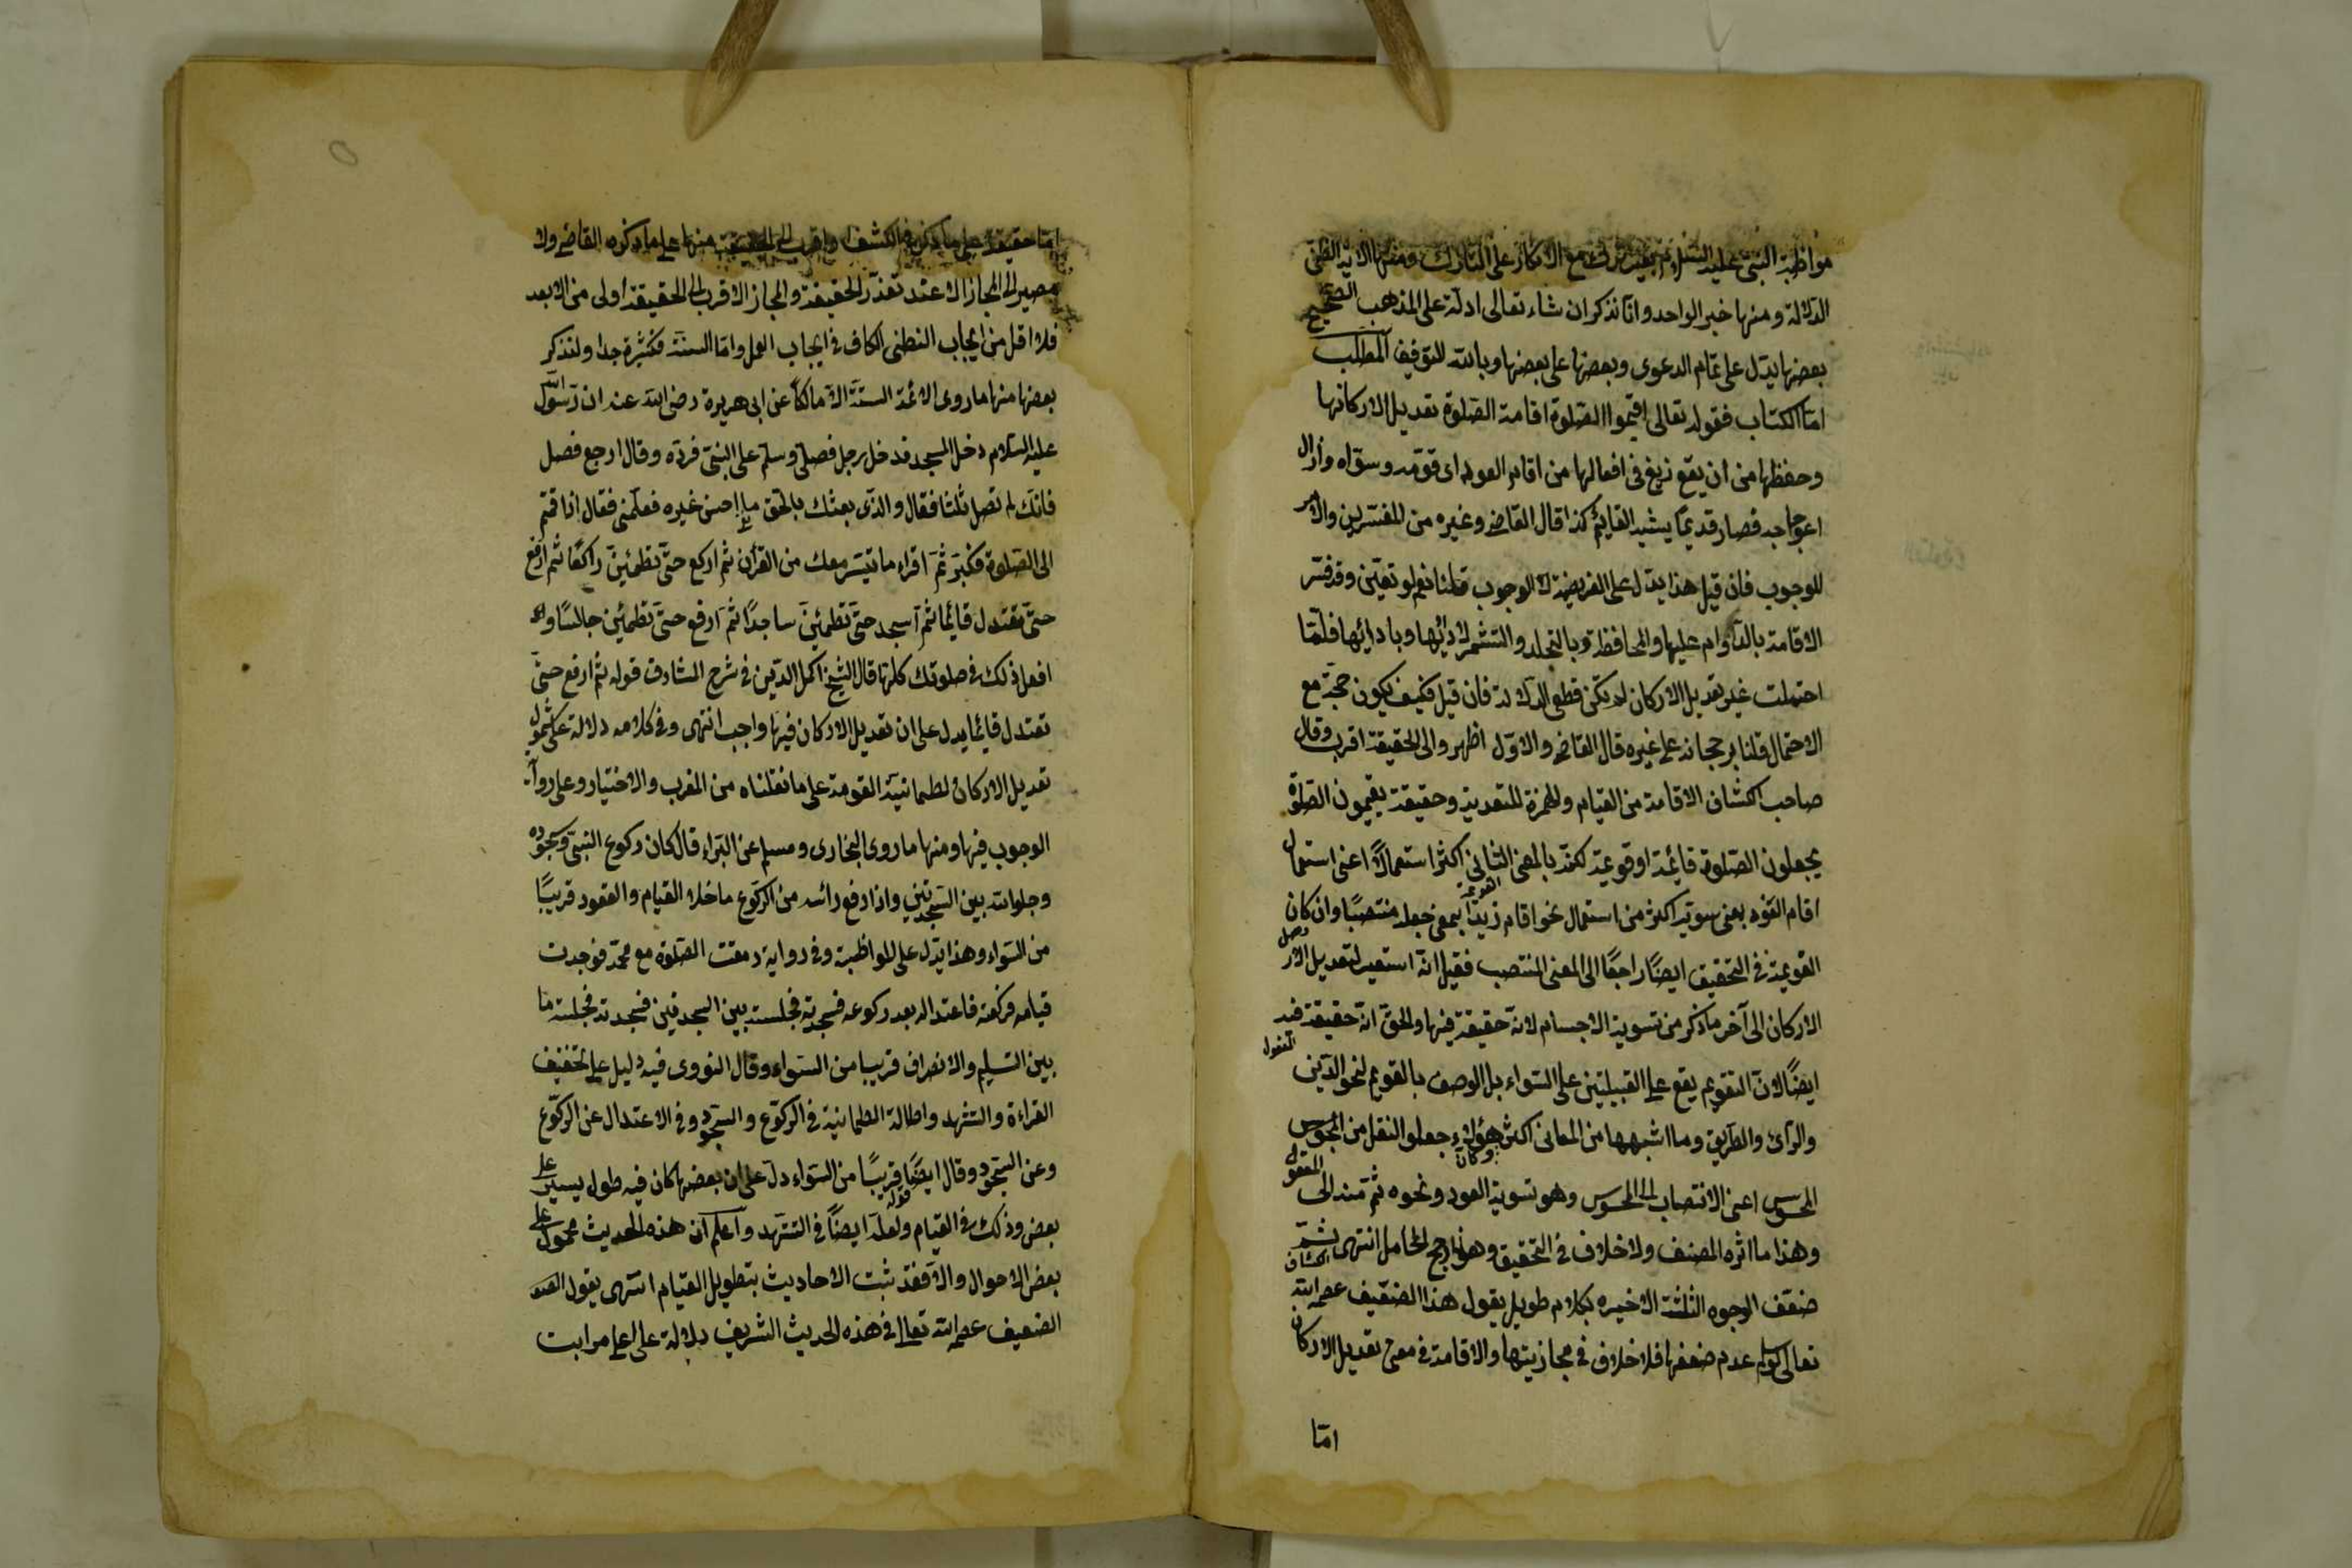 مواظبة النبي عليه السلام من غير ترك مع الانكار على التارك ومنها الآية الظني
الدلالة ومنها خبر الواحد وانا نذكر ان شاء تعالى ادلة على المذهب الصحيح
بعضها يدل على تمام الدعوى وبعضها على بعضها وبالله التوفيق المطلب
اما الكتاب فقوله تعالى اقيموا الصلوة اقامة الصلوة تعديل الاركانها
وحفظها من ان يقع زيغ في افعالها من اقام العود اى قومه وسواه وازال
اعوجاجه فصار قديما يشبه القايم كذا قال القاضى وغيره من المفسرين والامر
للوجوب فان قيل هذا يدل على الفريضة لا الوجوب قلنا نعم لو تعين وقد فسر
الاقامة بالدوام عليها والمحافظة وبالتجلد والتشمر لادائها وبادائها فلما
احتملت غير تعديل الاركان لم تكن قطعى الدلالة فان قيل فكيف يكون حجة مع
الاحتمال قلنا برجحانه على غيره قال القاضى والاول اظهر والى الحقيقة اقرب وقال
صاحب الكشاف الاقامة من القيام والهمزة للتعدية وحقيقة يقيمون الصلوة
يجعلون الصلوة قائمة او قويمة لكنه بالمعنى الثانى اكثر استعمالا اعنى استعمال
اقام العود بمعنى سويته اكثر من استعمال نحو اقام زيدا بمعنى جعله منتصبا وان كان القومة
القويمة في التحقيق ايضا راجعا الى المعنى المنتصب فقيل انه استعير لتعديل
الاركان الى آخر ما ذكر من تسوية الاجسام لانه حقيقة فيها والحق انه حقيقة فيه
ايضا لان التقويم يقع على القبيلتين على السواء بل الوصف بالقويم لنحو الدين
والرأى والطريق وما اشبهها من المعانى اكثر هؤلاء جعلو النقل من المحسوس
المحسوس اعنى الانتصاب الى المحسوس وهو تسوية العود ونحوه ثم منه الى المعقول
وهذا ما اثره المصنف ولا خلاف في التحقيق وهو نارجح لحامل انتهى ثم
ضعف الوجوه الثلثة الاخيره بكلام طويل يقول هذا الضعيف عصمه الله
تعالى لو سلم عدم ضعفها فلا خلاف في مجازيتها والاقامة في معنى تعديل الاركان
اما
اما حقيقة على ما ذكره في الكشف واقرب الى الحقيقة منها على ما ذكره القاضى ولا
مصير الى المجاز الا عند تعذر الحقيقة والمجاز الاقرب الى الحقيقة اولى من الابعد
فلا اقل من ايجاب الظنى الكاف في ايجاب العمل واما السنة فكثيرة جدا ولنذكر
بعضها منها ما روى الائمة الستة الا مالكا عن ابى هريرة رضى الله عنه ان رسول الله
عليه السلام دخل المسجد فدخل رجل فصلى وسلم على النبى فرده وقال ارجع فصل
فانك لم تصل ثلثا فقال والذى بعثك بالحق ما احسن غيره فعلمنى فقال اذا قمت
الى الصلوة فكبر ثم اقراء ما تيسر معك من القرأن ثم اركع حتى تطمئن راكعا ثم ارفع
حتى تعتدل قائما ثم اسجد حتى تطمئن ساجدا ثم ارفع حتى تطمئن جالسا و
افعل ذلك في صلوتك كلها قال الشيخ اكمل الدين في شرح المشارق قوله ثم ارفع حتى
تعتدل قائما يدل على ان تعديل الاركان فيها واجب انتهى وفي كلامه دلالة على شمول
تعديل الاركان لطمانية القومة على ما نقلناه من المغرب والاختيار وعلى رواية
الوجوب فيها ومنها ما روى البخارى ومسلم عن البراء قال كان ركوع النبى وسجوده
وجلوسه بين السجدتين واذا رفع رائسه من الركوع ما خلا القيام والقعود قريبا
من السواء وهذا يدل على المواظبة وفي رواية رمقت الصلوة مع محمد فوجدت
قيامه فركعته فاعتداله بعد ركوعه فسجدته فجلسته بين السجدتين فسجدته فجلسته ما
بين التسليم والانصراف قريبا من السواء وقال النووى فيه دليل على تخفيف
القراءة والتشهد واطالة الطمانية في الركوع والسجود وفي الاعتدال عن الركوع
وعن السجود وقال ايضا قوله قريبا من السواء دل على ان بعضها كان فيه طول يسير على
بعض وذلك في القيام ولعله ايضا في التشهد واعلم ان هذه الحديث محمول على
بعض الاحوال والا فقد ثبت الاحاديث بتطويل القيام انتهى يقول العبد
الضعيف عصمه الله تعالى في هذه الحديث الشريف دلالة على